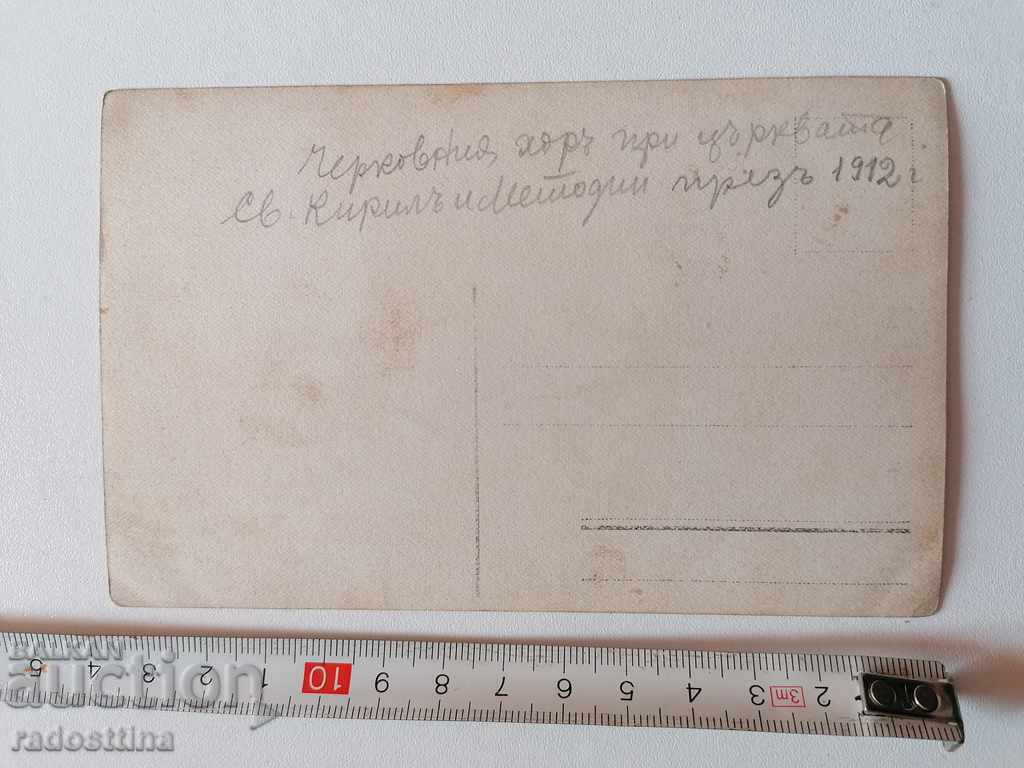 Черковния хоръ при църквата
Св. Кирилъ и Методии презъ 1912 г
5 4 3 2 1 10 9 8 7 6 5 4 3 3m 2
BALKAN
auction
radosttina